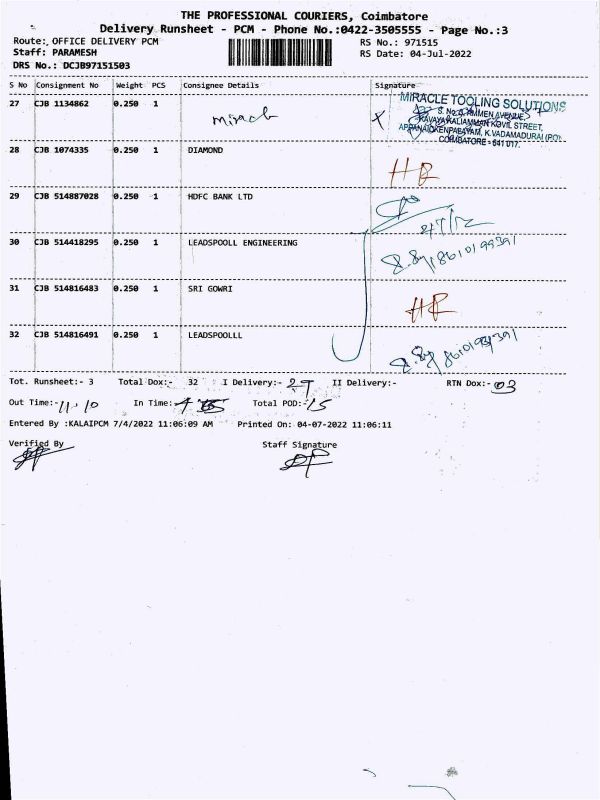 THE PROFESSIONAL COURIERS, Coimbatore
Delivery Runsheet - PCM - Phone No.:0422-3505555 - Page No.:3
Route: OFFICE DELIVERY PCM RS No.: 971515
Staff: PARAMESH RS Date: 04-Jul-2022
DRS No.: DCJB97151503
S No Consignment No Weight PCS Consignee Details Signature
27 CJB 1134862 0.250 1 Miracle
MIRACLE TOOLING SOLUTIONS
KAVAYAKALIAMMAN KOVIL STREET,
APPANAICKENPALAYAM, K.VADAMADURAI (PO)
COIMBATORE - 641 017.
28 CJB 1074335 0.250 1 DIAMOND
29 CJB 514887028 0.250 1 HDFC BANK LTD
30 CJB 514418295 0.250 1 LEADSPOOLL ENGINEERING
31 CJB 514816483 0.250 1 SRI GOWRI
32 CJB 514816491 0.250 1 LEADSPOOLLL
Tot. Runsheet:- 3 Total Dox:- 32 I Delivery:- 29 II Delivery:- RTN Dox:- 03
Out Time:- 11.10 In Time:- Total POD:- 15
Entered By :KALAIPCM 7/4/2022 11:06:09 AM Printed On: 04-07-2022 11:06:11
Verified By Staff Signature